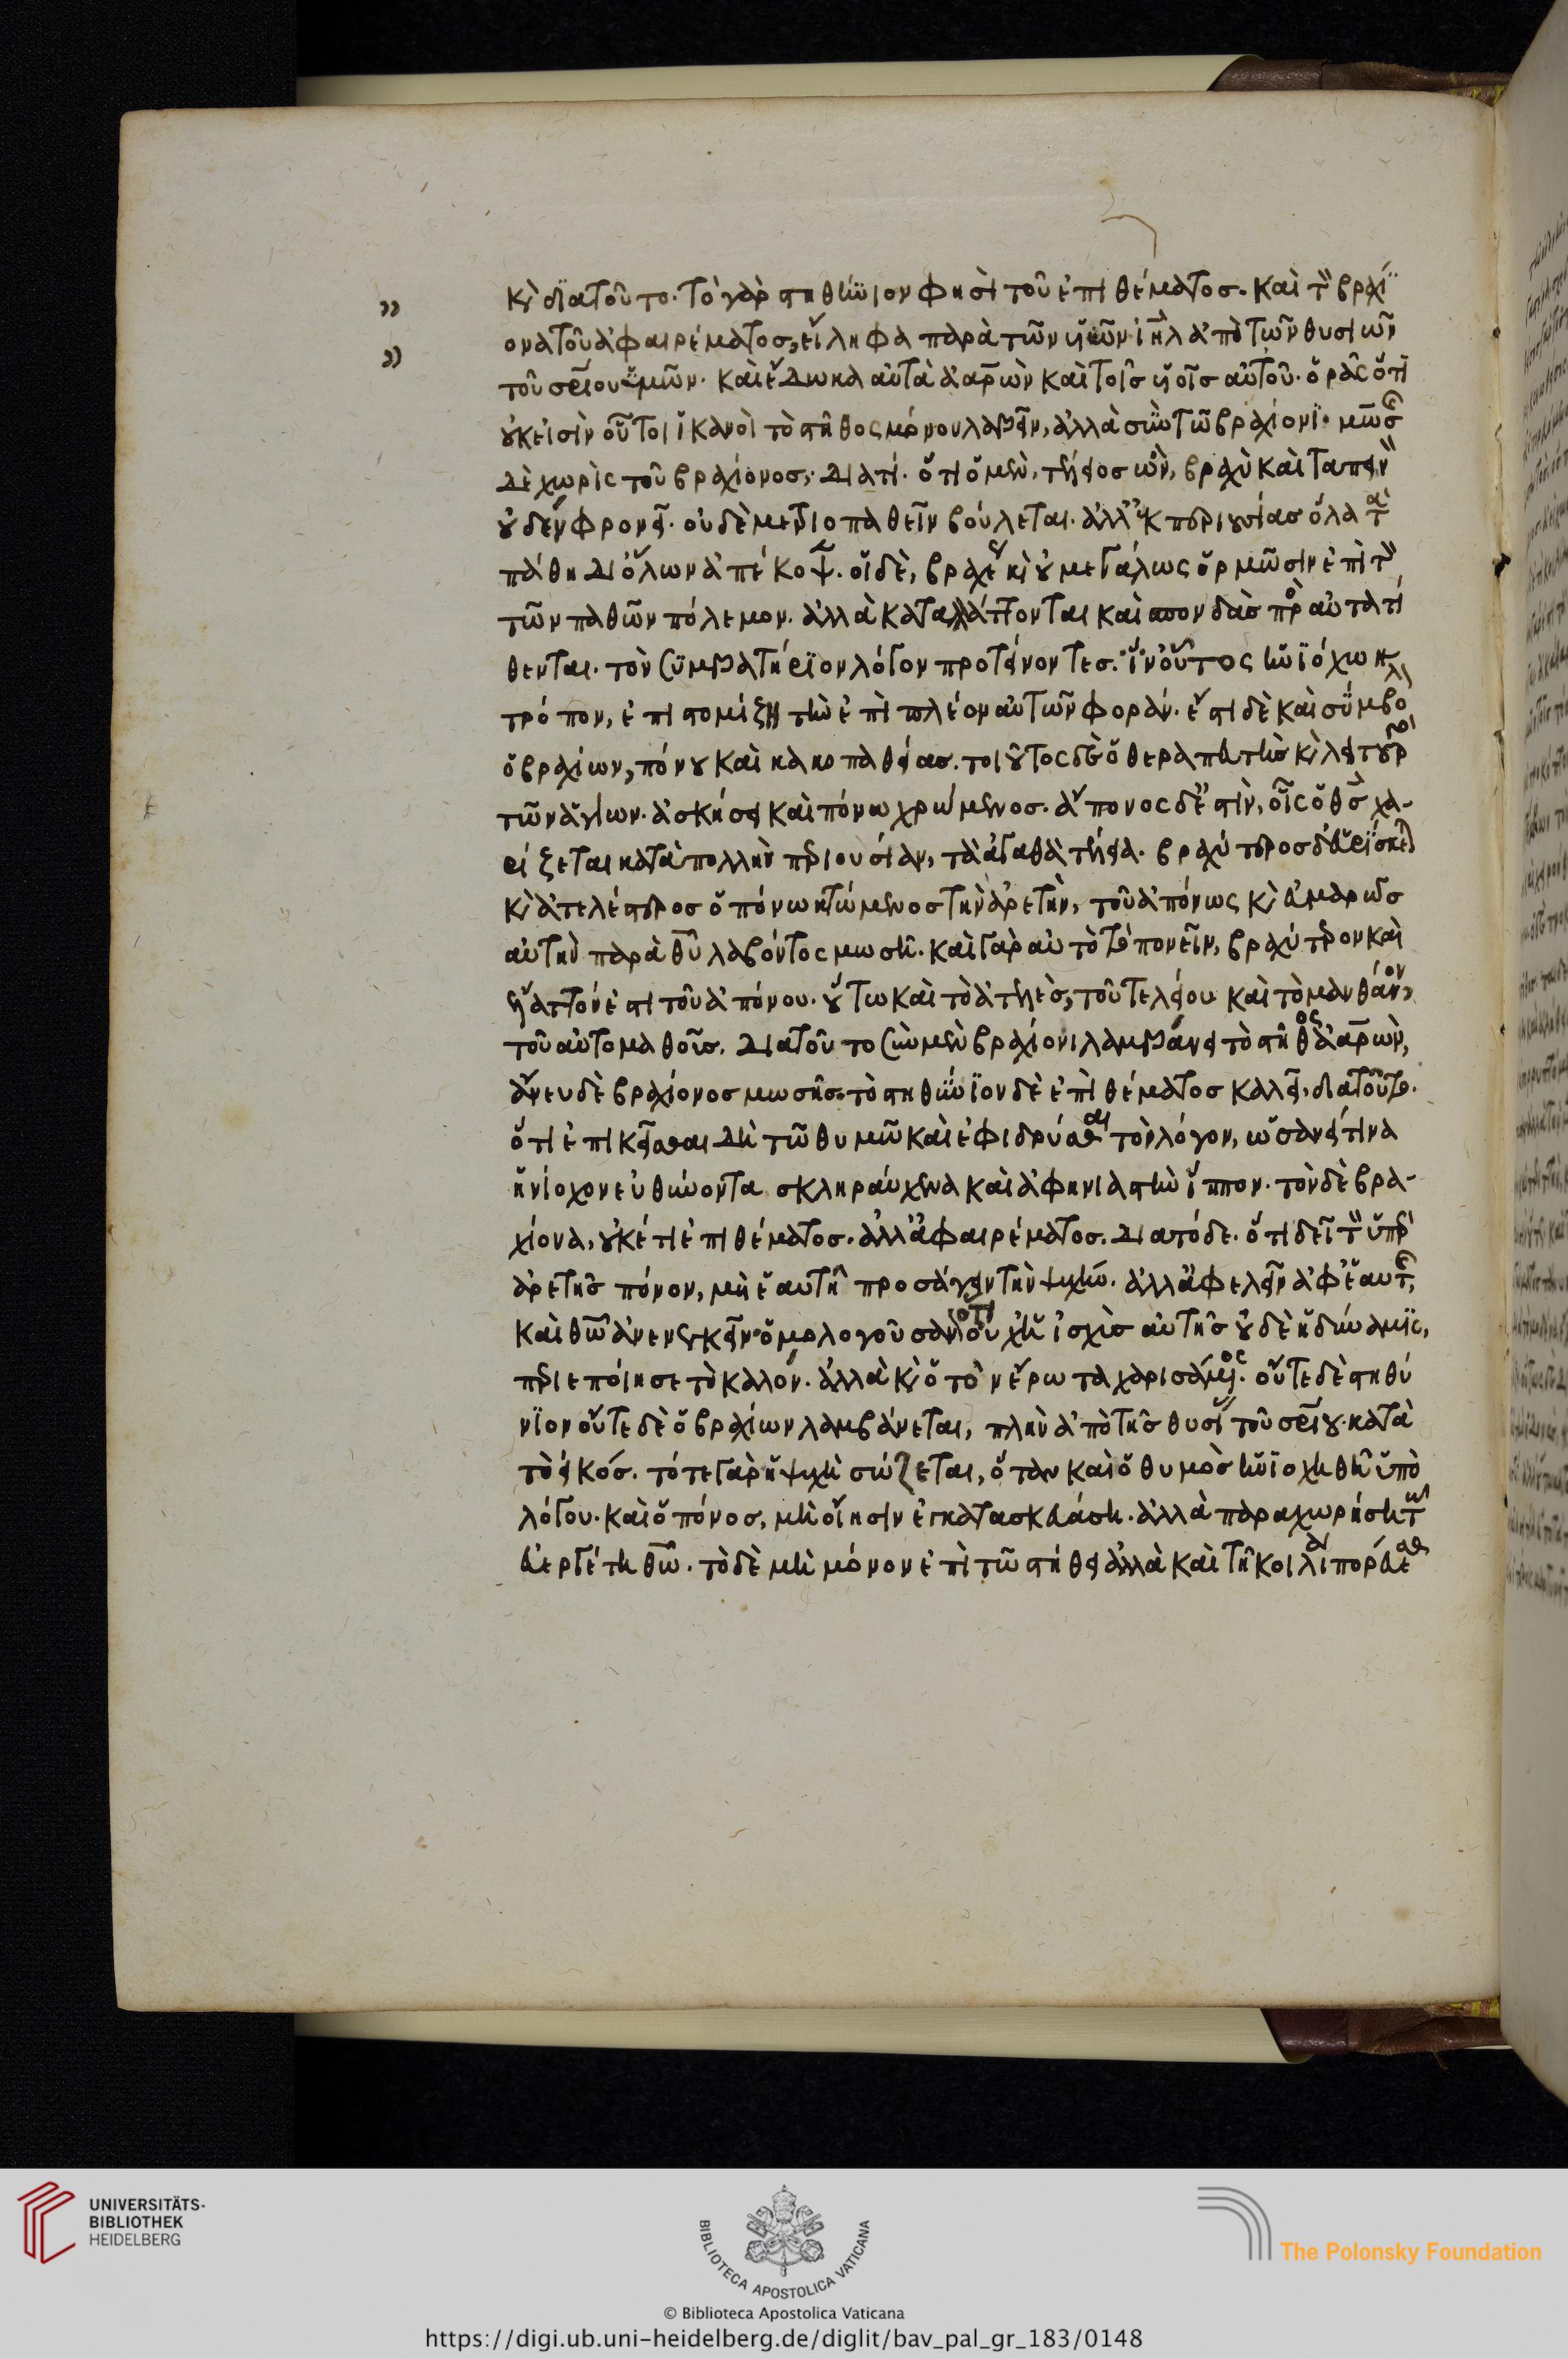 κ̀ διατοῦτο. τὸ γὰρ στηθύνιον φησὶ τοῦ ἐπιθέματος. καὶ τ̀ βραχί
ονα τοῦ ἀφαιρέματος, εἴληφα παρὰ τῶν υἱῶν ιη̅λ ἀπὸ τῶν θυσιῶν
τοῦ σρ̅ιου ὑμῶν. καὶ ἔδωκα αὐτὰ ἀαρὼν καὶ τοῖς υἱοῖς αὐτοῦ. ὁρᾶς ὅτι
οὐκ εἰσὶν οὗτοι ἱκανοὶ τὸ στῆθος μόνον λαβεῖν, ἀλλὰ σὺν τῶ βραχίονι. μωσῆς
δὲ χωρὶς τοῦ βραχίονος, διατί. ὅτι ὁ μὲν, τέλειος ὢν, βραχὺ καὶ ταπεινὸν
οὐδὲν φρονεῖ. οὐδὲ μετριοπαθεῖν βούλεται. ἀλλ' ἐκ περιουσίας ὅλα τὰ
πάθη δι' ὅλων ἀπέκοψε. οἱ δὲ, βραχέα κ̀ οὐ μεγάλως ὁρμῶσιν ἐπὶ τὸν
τῶν παθῶν πόλεμον. ἀλλὰ καταλλάττονται καὶ σπονδὰς πρὸς αὐτὰ τί
θενται. τὸν συμβατήριον λόγον προτείνοντες. ἵν' οὗτος ἡνιόχων
τρόπον, ἐπιστομίζη τὴν ἐπὶ πλέον αὐτῶν φοράν. ἔστι δὲ καὶ σύμβολ
ὁ βραχίων, πόνου καὶ κακοπαθείας. τοιοῦτος δὲ ὁ θεραπευτὴς κ̀ λειτουργὸς
τῶν ἁγίων. ἀσκήσει καὶ πόνω χρώμενος. ἄπονος δέ ἐστιν, οἷς ὁ θς̅ χα-
ρίζεται κατὰ πολλὴν περιουσίαν, τὰ ἀγαθὰ τέλεια. βραχύτερος δὲ εὑρίσκεται
κ̀ ἀτελέστερος ὁ πόνω κτώμενος τὴν ἀρετὴν, τοῦ ἀπόνως κ̀ εὐμαρῶς
αὐτὴν παρὰ θυ̅ λαβόντος μωσῆ. καὶ γὰρ αὐτὸ τὸ πονεῖν, βραχύτερον καὶ
ἧαττόν ἐστι τοῦ ἀπόνου. οὕτω καὶ τὸ ἀτελὲς, τοῦ τελείου καὶ τὸ μανθάνον,
τοῦ αὐτομαθοῦς. διατοῦτο σὺν μὲν βραχίονι λαμβάνει τὸ στῆθος ἀαρὼν,
ἄνευ δὲ βραχίονος μωσῆς. τὸ στηθύνιον δὲ ἐπιθέματος καλεῖ, διατοῦτο.
ὅτι ἐπικεῖσθαι δεῖ τῶ θυμῶ καὶ ἐφιδρύσθαι τὸν λόγον, ὡσανεί τινα
ἡνίοχον εὐθύνοντα σκληραύχενα καὶ ἀφηνιαστὴν ἵππον. τὸν δὲ βρα-
χίονα, οὐκέτι ἐπιθέματος. ἀλλ' ἀφαιρέματος. διὰ τόδε. ὅτι δεῖ τὸν ὑπὲρ
ἀρετῆς πόνον, μὴ ἑαυτῆ προσάγειν τὴν ψυχήν. ἀλλ' ἀφελεῖν ἀφ' ἑαυτῆς,
καὶ θω̅ ἀνενεγκεῖν ὁμολογοῦσαν ὅτι οὐχ ἡ ἰσχὺς αὐτῆς οὐδὲ ἡ δύναμις,
περιεποίησε τὸ καλόν. ἀλλὰ κ̀ ὁ τὸν ἔρωτα χαρισάμενος. οὔτε δὲ στηθύ
νιον οὔτε δὲ ὁ βραχίων λαμβάνεται, πλὴν ἀπὸ τῆς θυσί τοῦ σρ̅ιου. κατὰ
τὸ εἰκός. τότε γὰρ ἡ ψυχὴ σώζεται, ὅταν καὶ ὁ θυμὸς ἡνιοχηθῆ ὑπὸ
λόγου. καὶ ὁ πόνος, μὴ οἴησιν ἐγκατασκευάση. ἀλλὰ παραχωρήση τῶ
εὐεργέτη θω̅. τὸ δὲ μὴ μόνον ἐπὶ τῶ στήθει ἀλλὰ καὶ τῆ κοιλία πορεύεσθ
UNIVERSITÄTS-
BIBLIOTHEK
HEIDELBERG
BIBLIOTECA APOSTOLICA VATICANA
The Polonsky Foundation
© Biblioteca Apostolica Vaticana
https://digi.ub.uni-heidelberg.de/diglit/bav_pal_gr_183/0148